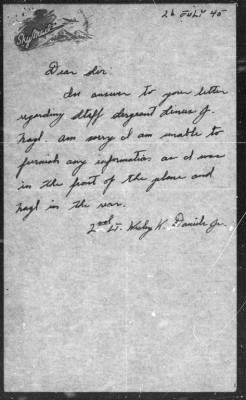 Sky Mail
26 JULY 45
Dear sir:
In answer to your letter
regarding Staff Sergeant Linus J.
Nagl. Am sorry I am unable to
furnish any information as I was
in the front of the plane and
Nagl in the rear.
2nd Lt. Wesley K. Daniels Jr.